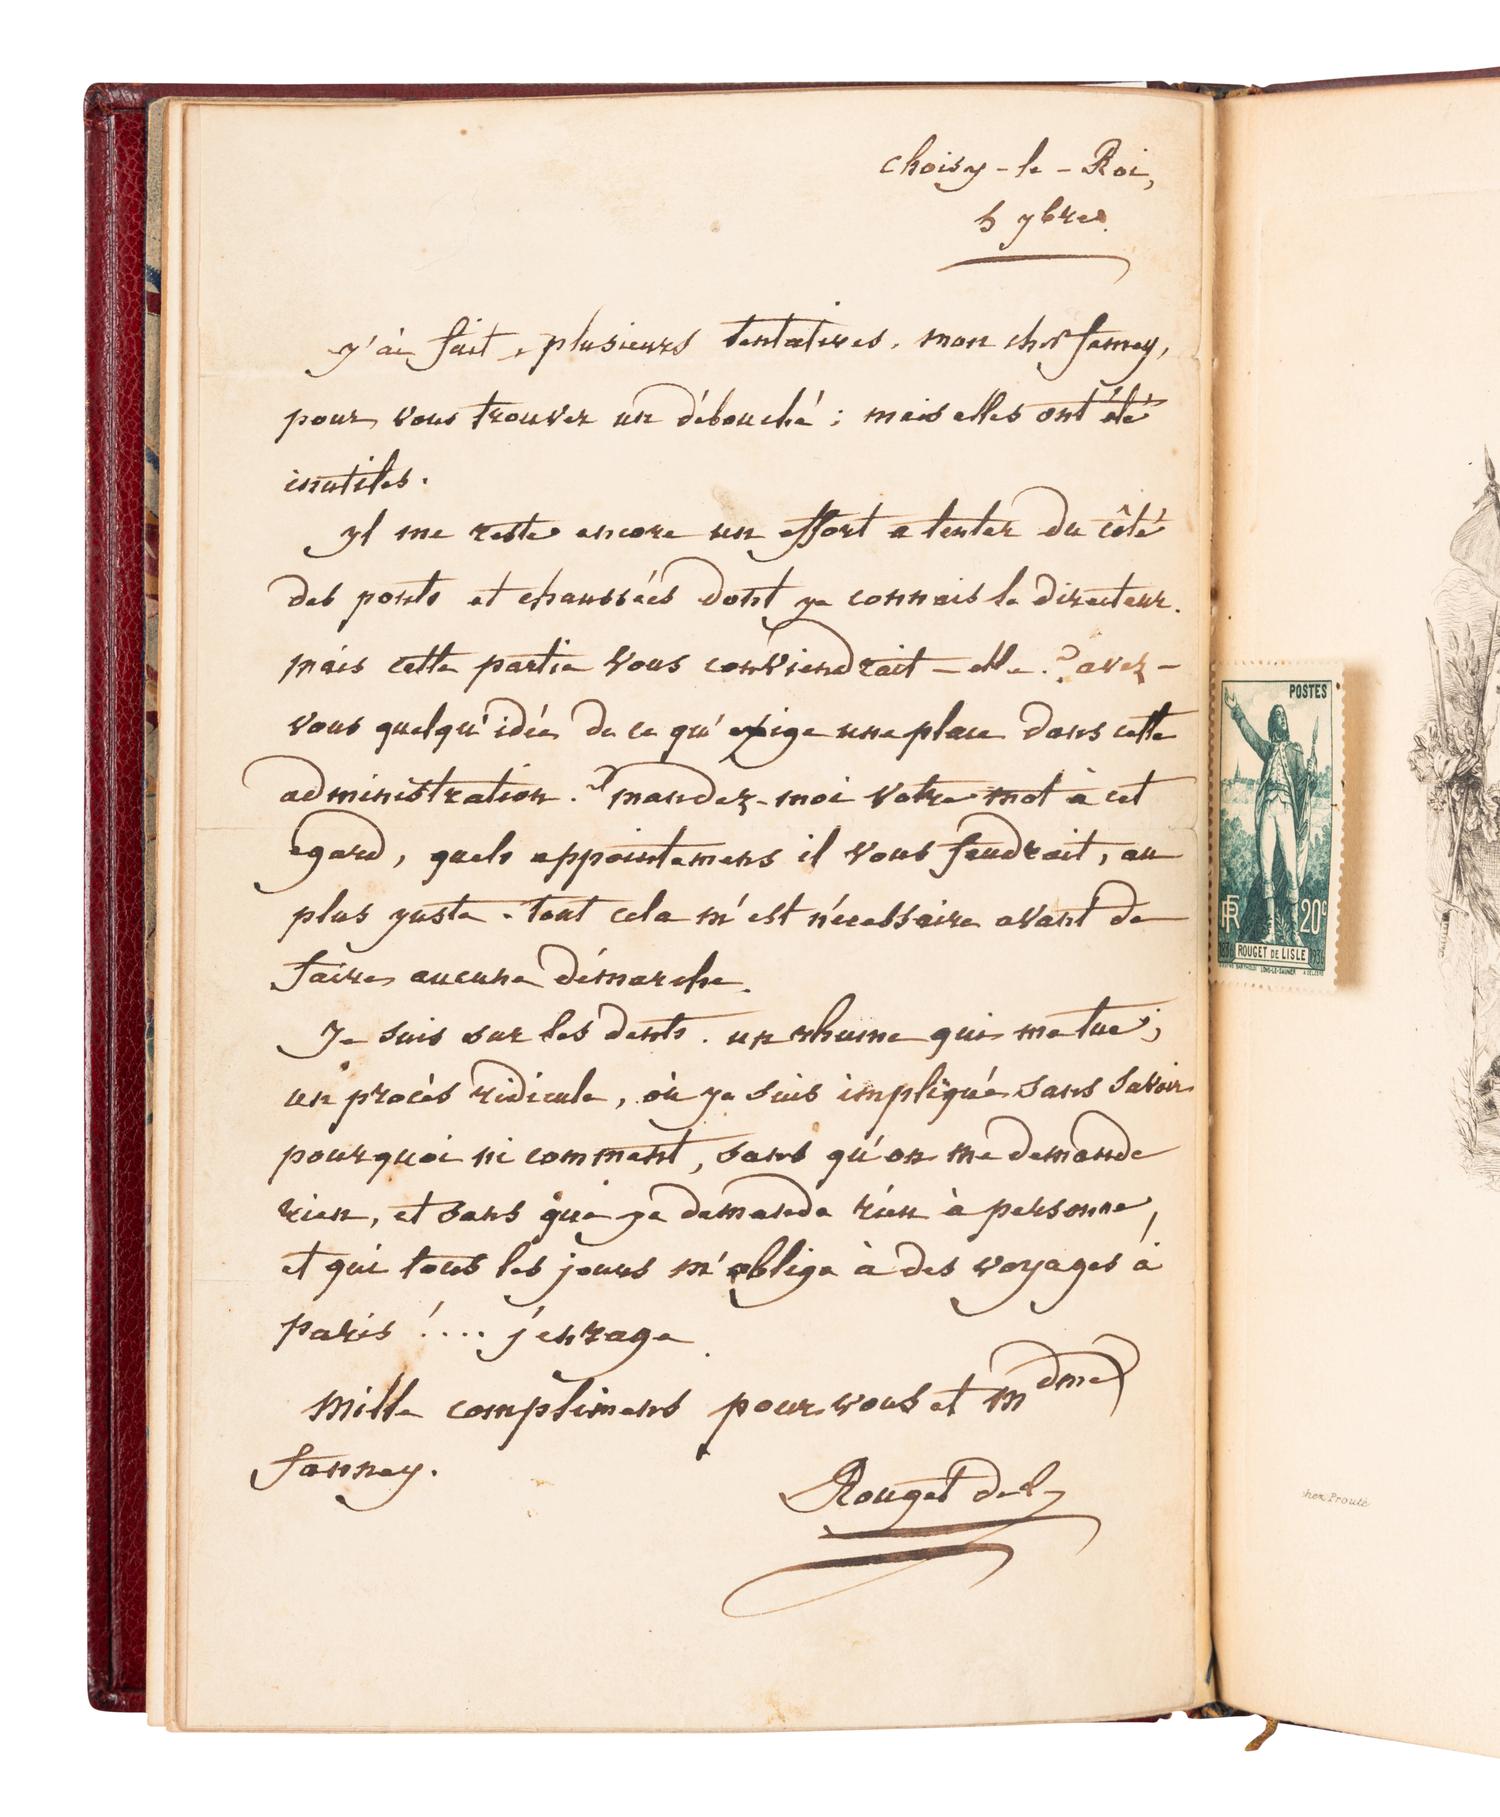 choisy-le-Roi,
5 9bre.
y'ai fait, plusieurs tentatives, mon cher fanney,
pour vous trouver un débouché : mais elles ont été
inutiles.
yl me reste encore un effort a tenter du côté
des ponts et chaussées dont ye connais le directeur.
mais cette partie vous conviendrait-elle.? avez-
vous quelqu'idée de ce qu'exige une place dans cette
administration.? mandez-moi votre mot à cet
egard, quels appointemens il vous faudrait, au
plus yuste. tout cela m'est nécessaire avant de
faire aucune démarche.
Je suis sur les dents. un rhume qui me tue;
un procès ridicule, où ye suis impliqué sans savoir
pourquoi ni comment, sans qu'on me demande
rien, et sans que ye demande rien à personne,
et qui tous les jours m'oblige à des voyages à
paris !.... j'enrage.
mille complimens pour vous et mdme
fanney.
Rouget del
POSTES
RF 20c
1836 ROUGET DE LISLE 1936
chez Prouté